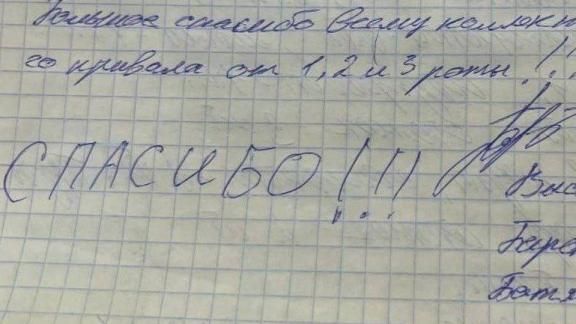 Большое спасибо всему коллек
го привала от 1, 2 и 3 роты!!!
СПАСИБО!!!
Выс
Бере
Батя